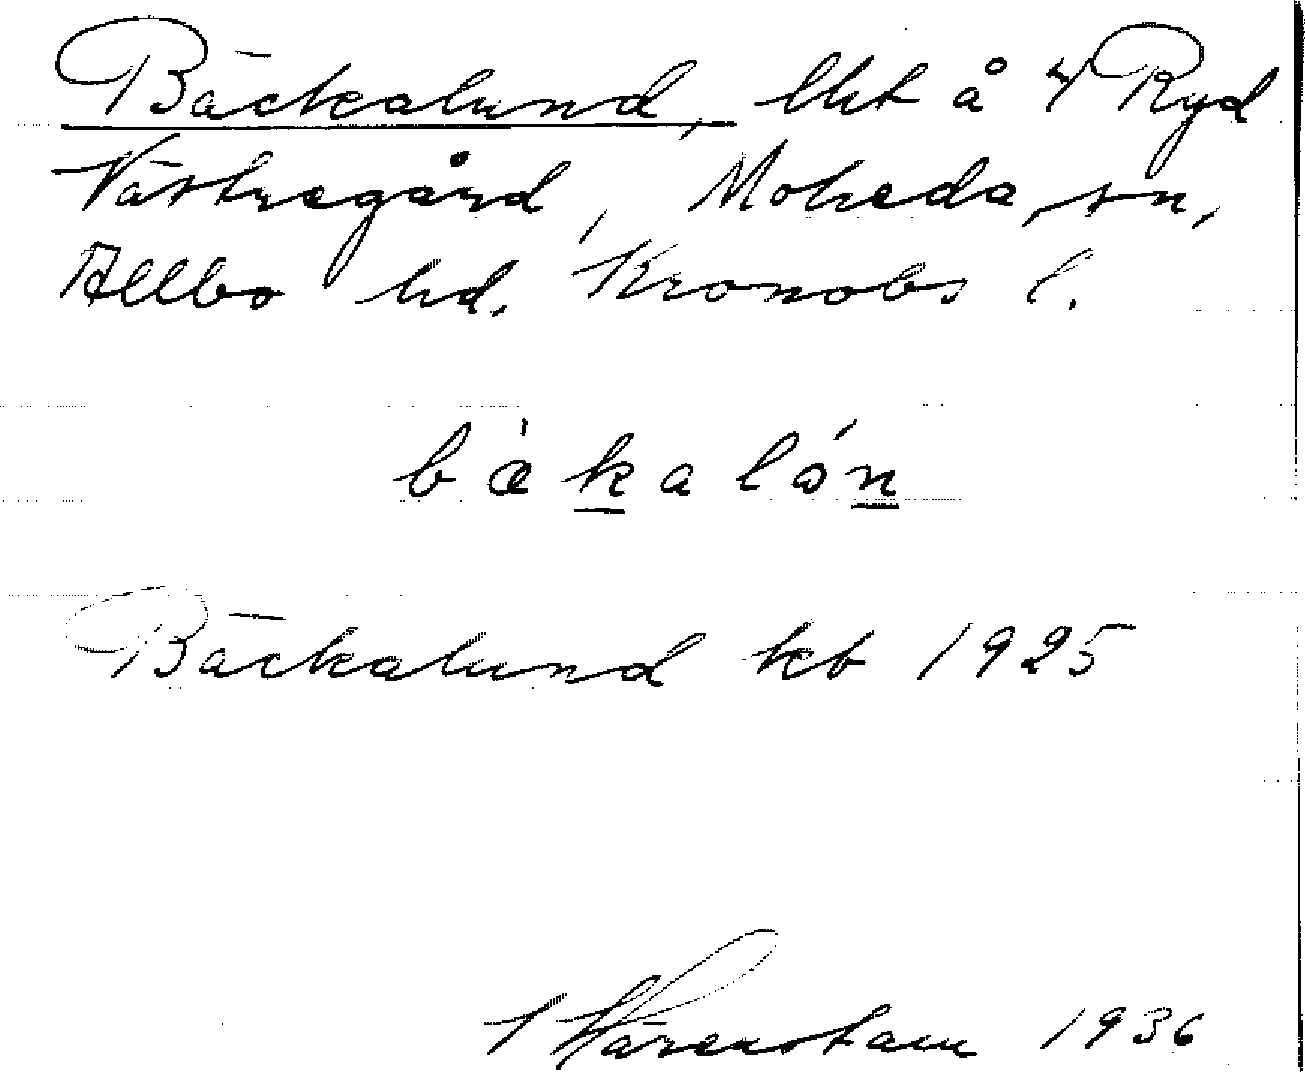 Bäckalund, lht å 4 Ryd
Västregård, Moheda sn,
Allbo hd. Kronobs l.
bæ̀kalón
Bäckalund kb 1925
Härenstam 1936